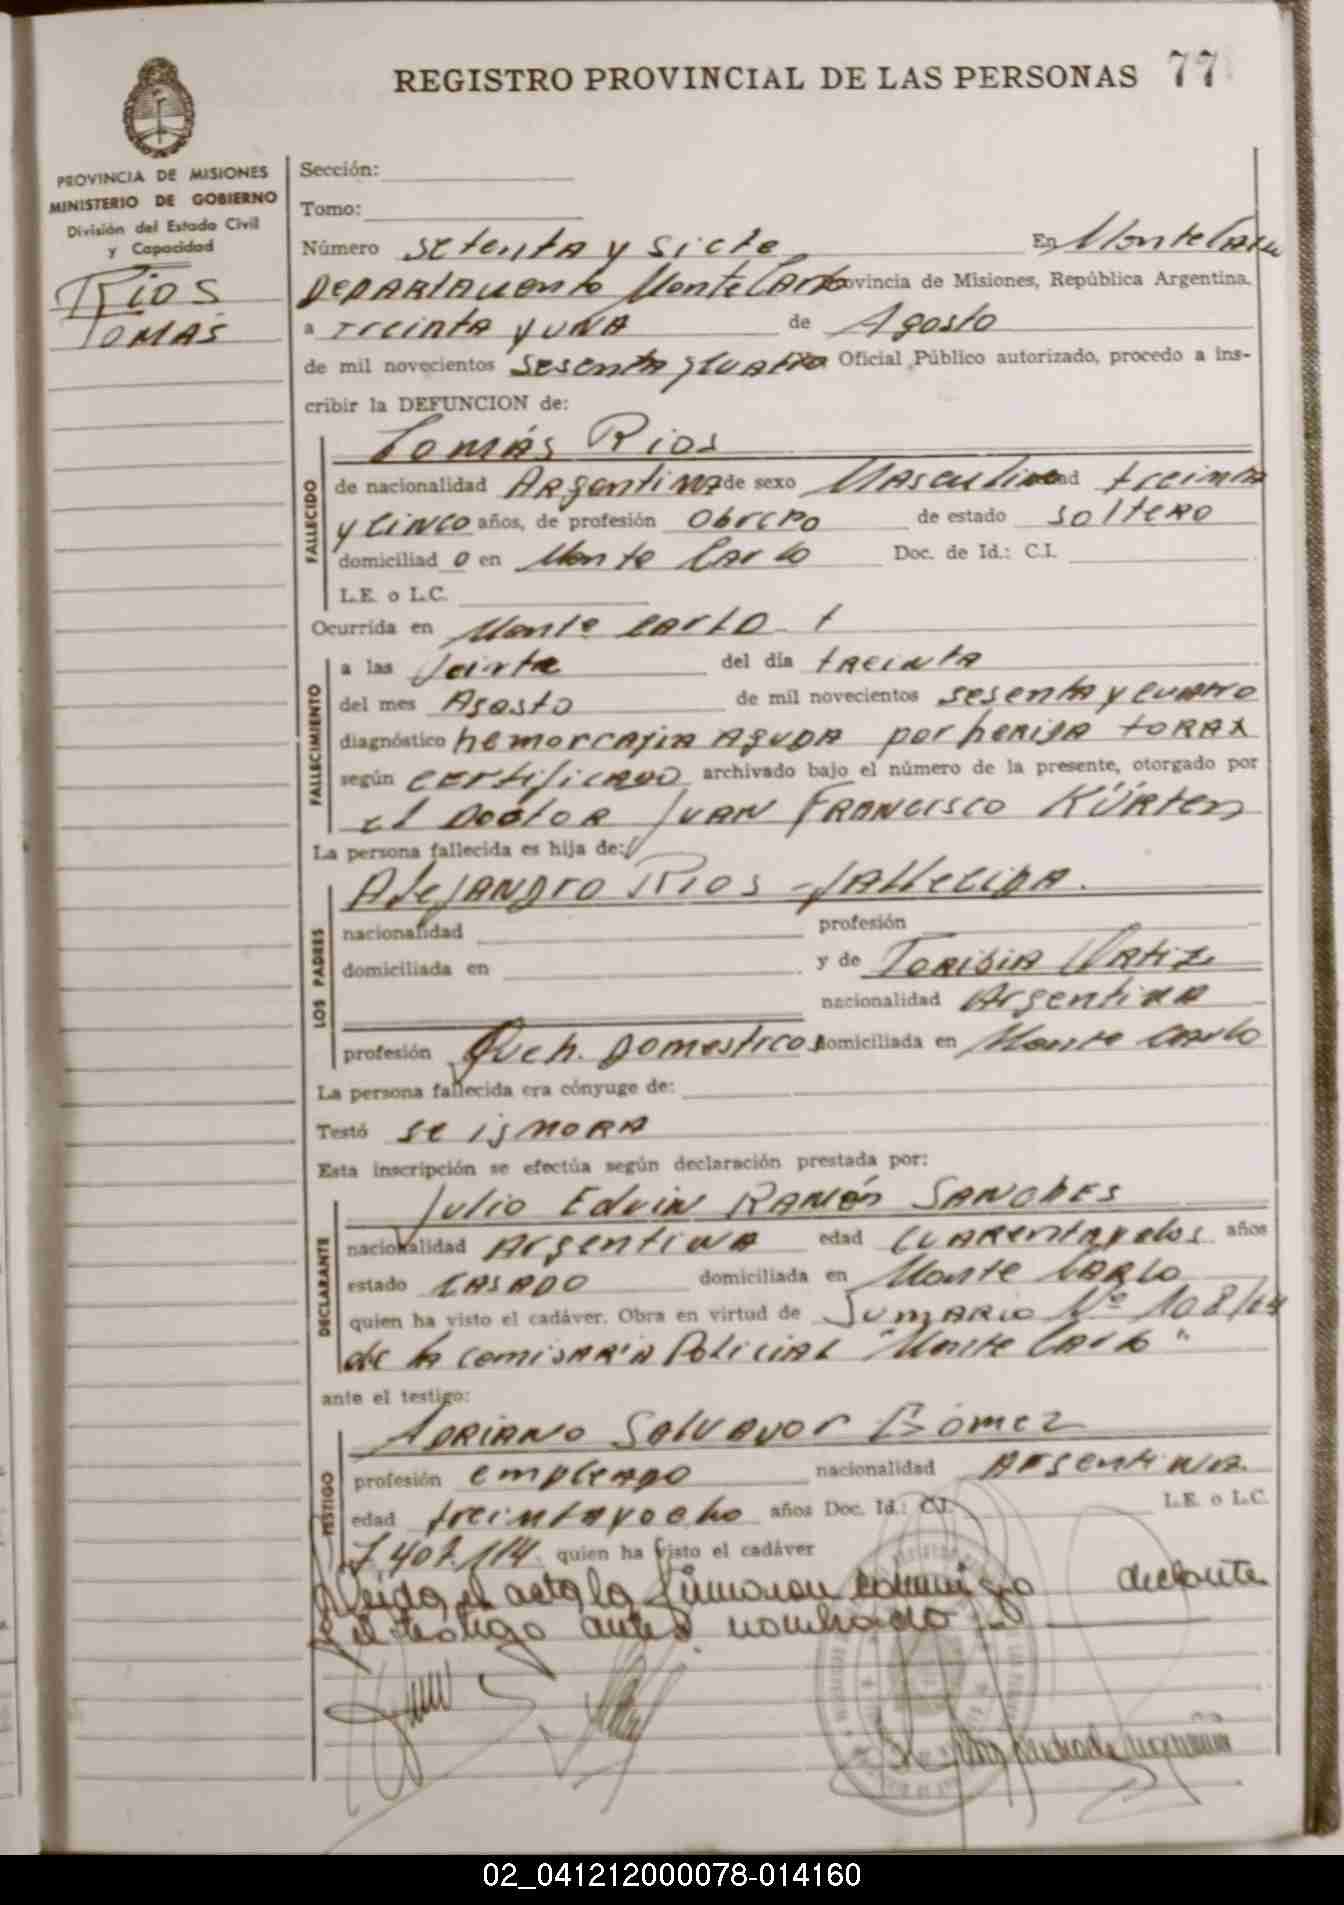 REGISTRO PROVINCIAL DE LAS PERSONAS 77
PROVINCIA DE MISIONES
MINISTERIO DE GOBIERNO
División del Estado Civil
y Capacidad
RIOS
TOMÁS
Sección:
Tomo:
Número setenta y siete En Monte Carlo
Departamento Monte Carlo Provincia de Misiones, República Argentina,
a treinta y una de Agosto
de mil novecientos sesenta y cuatro Oficial Público autorizado, procedo a ins-
cribir la DEFUNCION de:
Tomás Rios
FALLECIDO
de nacionalidad Argentina de sexo Masculino edad treinta
y cinco años, de profesión Obrero de estado soltero
domiciliad o en Monte Carlo Doc. de Id.: C.I.
L.E. o L.C.
Ocurrida en Monte Carlo
FALLECIMIENTO
a las veinte del día treinta
del mes Agosto de mil novecientos sesenta y cuatro
diagnóstico hemorrajia aguda por herida torax
según certificado archivado bajo el número de la presente, otorgado por
el Doctor Juan Francisco Kürten
La persona fallecida es hija de:
LOS PADRES
Alejandro Rios - fallecida.
nacionalidad profesión
domiciliada en y de Toribia Ortiz
nacionalidad Argentina
profesión Queh. Domesticos domiciliada en Monte Carlo
La persona fallecida era cónyuge de:
Testó se ignora
Esta inscripción se efectúa según declaración prestada por:
DECLARANTE
Julio Edvin Ramón Sanches
nacionalidad Argentina edad cuarenta y dos años
estado casado domiciliada en Monte Carlo
quien ha visto el cadáver. Obra en virtud de Sumario Nº 108/64
de la comisaría Policial "Monte Carlo"
ante el testigo:
TESTIGO
Adriano Salvador Gómez
profesión empleado nacionalidad Argentina
edad treinta y ocho años Doc. Id.: C.I. L.E. o L.C.
7.407.114 quien ha visto el cadáver
Leida el acta la firmaron conmigo declarante
y el testigo antes nombrado
02_041212000078-014160